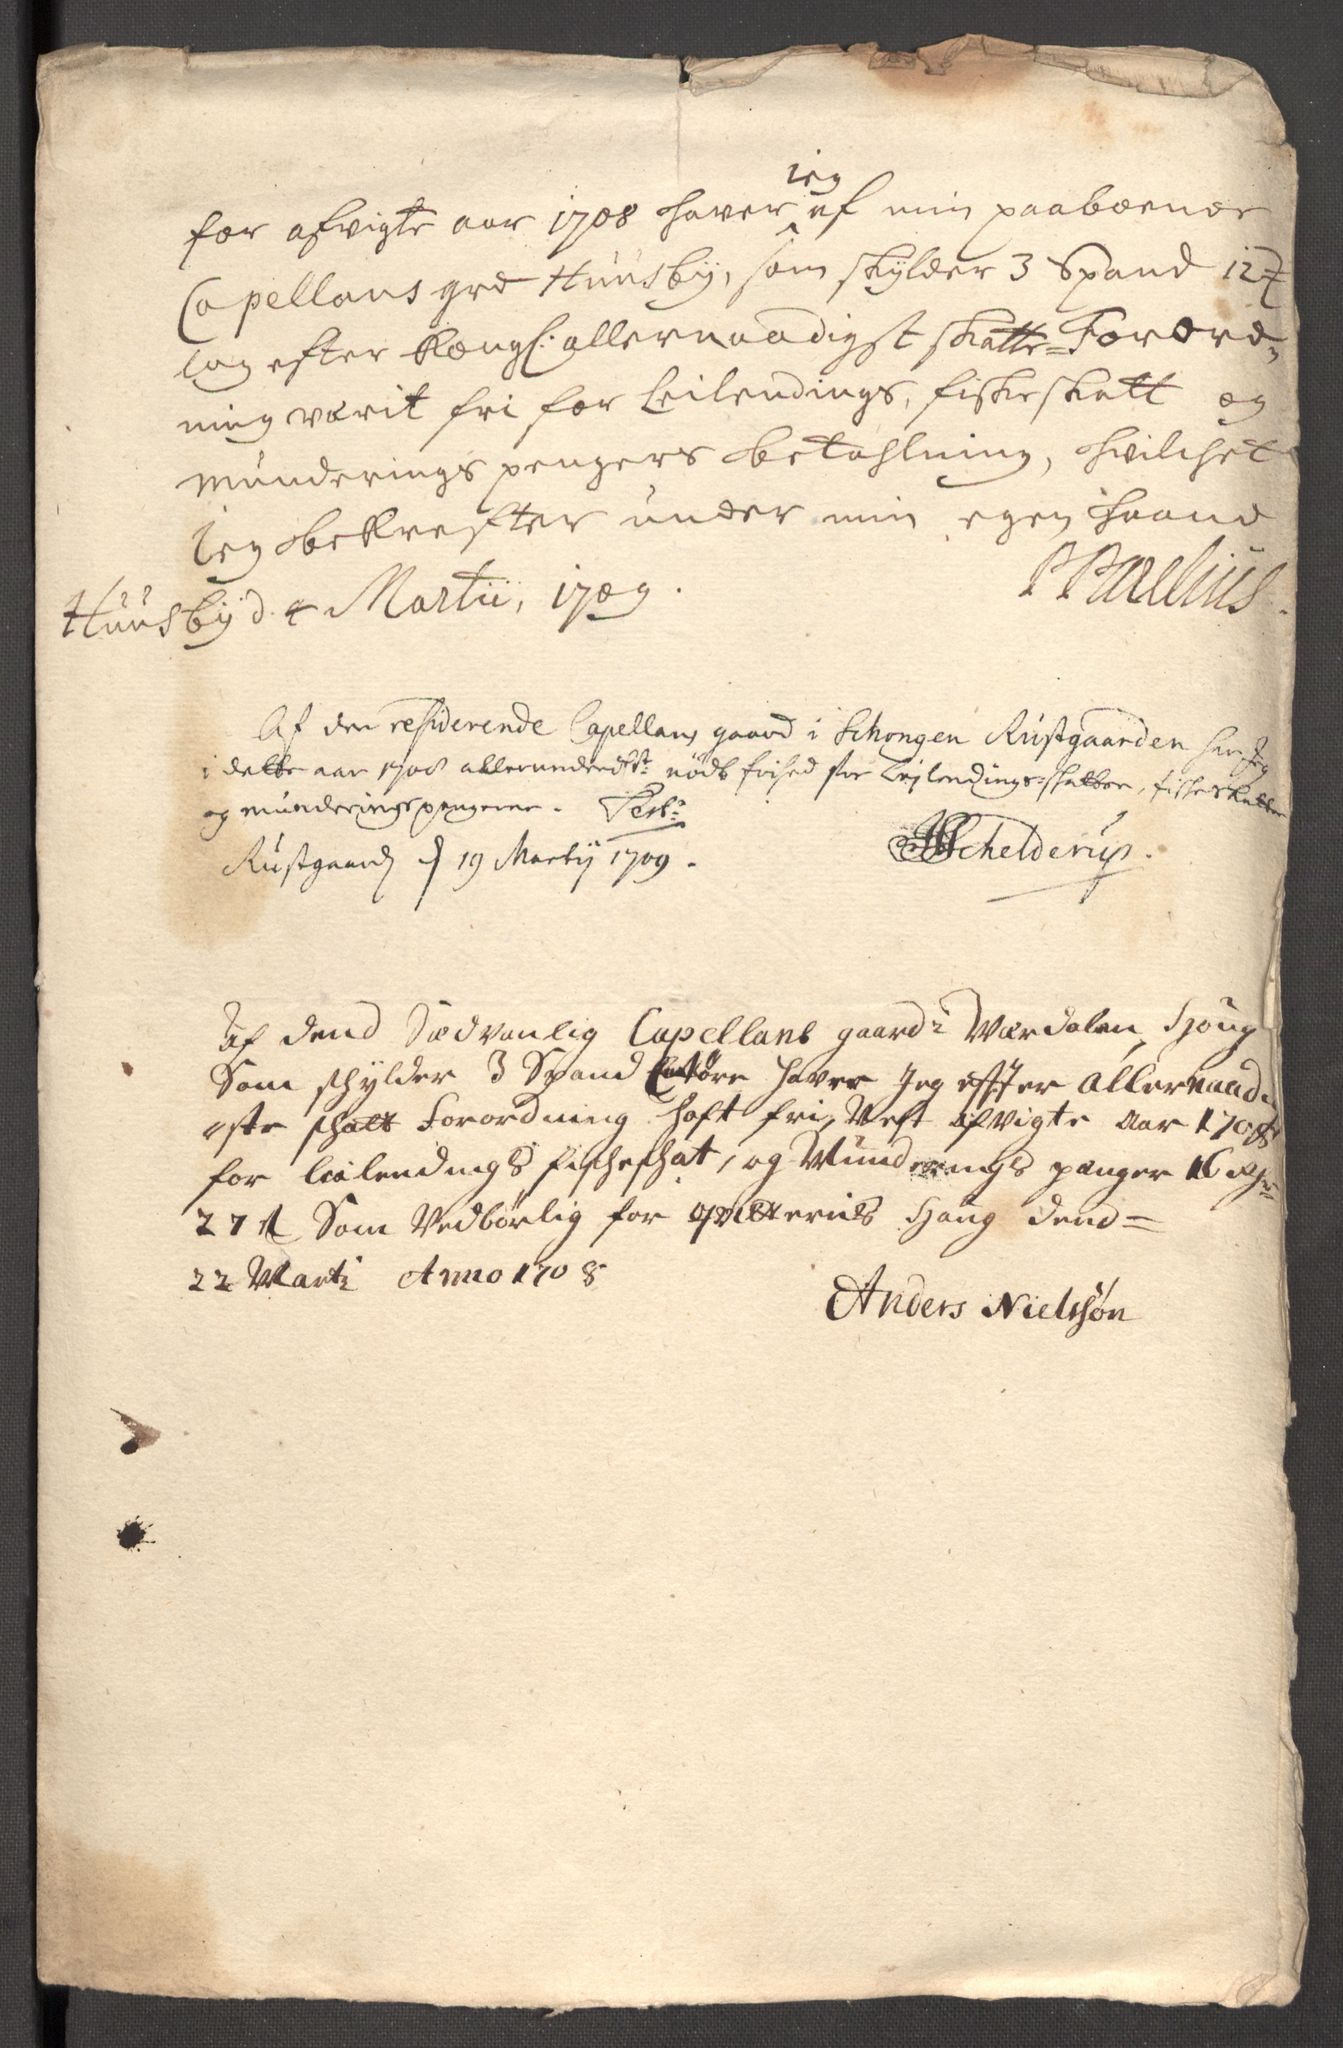 for afvigte aar 1708 haver ieg af min paaboende
Capellans grd Huusby, som skylder 3 Spand 12
lag efter Kongl: allernaadigst skatte=Forord=
ning værit fri for Leilendings, fiskeskatt og
munderings pengers betahlning, hvilchet
ieg bekrefter under min egen haand
Huusby d. 4 Martii, 1709. PParelius.
Af den residerende Capellans gaard i Schongen Rustgaarden har Jeg
i dette aar 1708 allerunderdst nödt frihed for Leilendings=skatter, fiskeskatter
og munderingspengene. Test:
Rustgaard d 19 Martij 1709. Schelderup.
Af dend Sædvanlig Capellans gaard i Værdalen Houg
Som schylder 3 Spand haver Jeg effter Allernaadi
gste schatt Forordning haft fri Vest afvigte Aar 1708
for leilendings fischeschat, og Munderings pænger 16
27 Som Vedbørlig for qvitteris Houg dend=
22 Marti Anno 1708
Anders Nielssøn